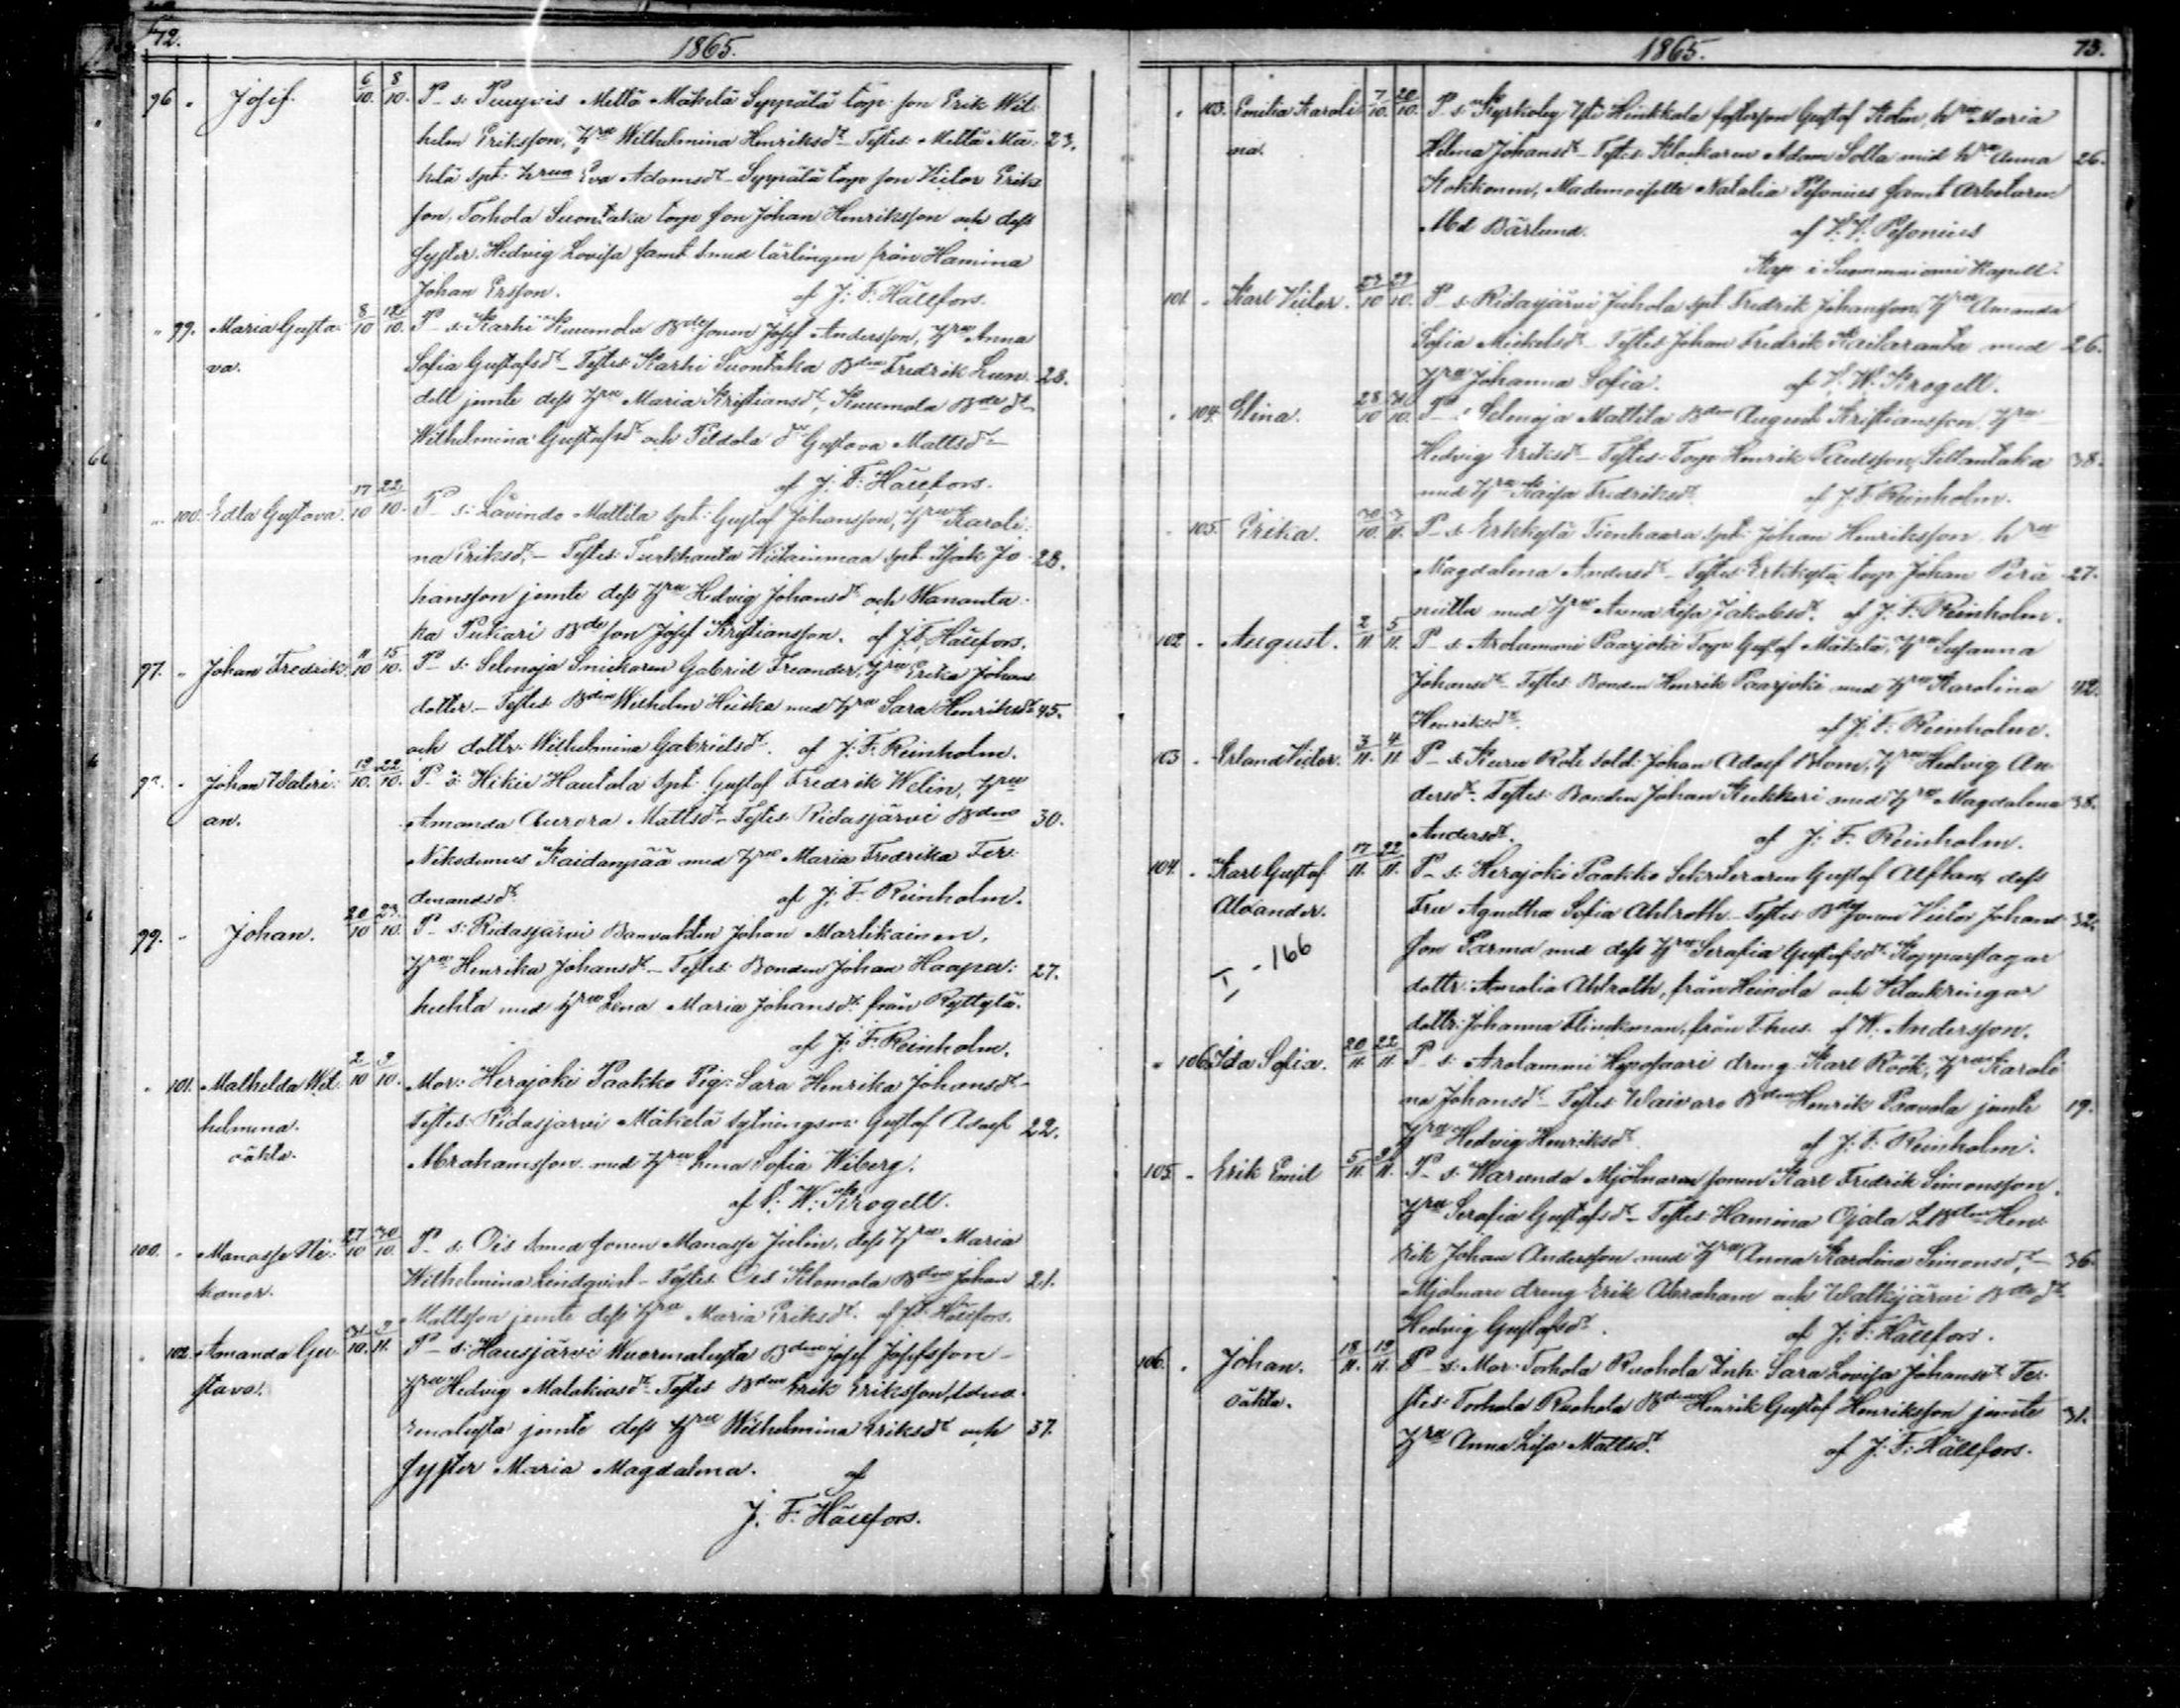 72. 1865.
96 " Josef. 6/10. 8/10. P. s: Puujois Mellä Mäkelä Seppälä torp. son Erik Wil-
helm Eriksson, Hru Wilhelmina Henriksdr. Testes: Mellä Mä- 23.
kelä spt. hru Eva Adamsdr. Seppälä torp son Victor Eriks
son, Torhola Suontaka torp son Johan Henriksson och dess
syster Hedvig Lovisa samt smed lärlingen från Hamina
Johan Ersson. af J: F: Hällfors.
" 99. Maria Gusta- 8/10 12/10. P. s: Karhi Kuumola Bdesonen Josef Andersson, Hru Anna
va. Sofia Gustafsdr. Testes: Karhi Suontaka Bden Fredrik Lun- 28.
dell jemte dess Hru Maria Kristiansdr, Kuumola Bde dr
Wilhelmina Gustafsdr och Peldola dr Gustava Mattsdr
af J: F: Hällfors.
" 100. Edla Gustava. 17/10 22/10. P. s: Lävindo Mattila spt: Gustaf Johansson, Hru Karoli-
na Eriksdr. Testes: Turkhauta spt. Isak Jo- 28.
hansson jemte dess Hru Hedvig Johansdr och Wananta-
ka Pukari Bde son Josef Kristiansson. af J: F: Hällfors.
97. " Johan Fredrik. 11/10 15/10. P. s: Selenoja Snickaren Gabriel Freander, Hru Erika Johans
dotter. Testes Bden Wilhelm Heiska med Hru Sara Henriksdr 45.
och dottr. Wilhelmina Gabrielsdr. af J: F: Reinholm.
98. " Johan Waleri- 19/10. 22/10. P. s: Hikie Hautala spt. Gustaf Fredrik Welin, Hru
an. Amanda Aurora Mattsdr. Testes Ridasjärvi Bden 30.
Nikodemus Kaidanpää med Hru Maria Fredrika Fer-
denandsdr. af J: F: Reinholm.
99. " Johan. 20/10 23/10. P. s: Ridasjärvi Banvakten Johan Martikainen,
Hru Henrika Johansdr. Testes Bonden Johan Haapa- 27.
huhta med Hru Lena Maria Johansdr från Ryttylä.
af J: F: Reinholm.
" 101. Mathelda Wil- 2/10 9/10. Mor: Herajoki Paakko Pig: Sara Henrika Johansdr
helmina. Testes Ridasjarvi Mäkelä sytningsm: Gustaf Adolf 22.
oäkta. Abrahamsson med Hru Lena Sofia Wiberg.
af V: W: Krogell.
100. " Manasse Ni- 27/10 30/10. P. s: Ois smed sonen Manasse Julin, dess Hru Maria
kanor. Wilhelmina Lindqvist. Testes Ois Klemola Bden Johan 21.
Mattsson jemte dess Hru Maria Eriksdr. af J: F: Hällfors.
" 102. Amanda Gu- 31/10. 2/11. P. s: Hausjärvi Wuorenalusta Bden Josef Josefsson
stava. Hru Hedvig Malakiasdr. Testes Bden Erik Eriksson, Wuo-
renalusta jemte dess Hru Wilhelmina Eriksdr och 37.
syster Maria Magdalena. af
J. F. Hällfors.
1865. 73.
" 103. Emilia Karoli- 7/10. 20/10. P. s: Kyrkoby Yli Hinkkala fosterson Gustaf Kolin, hru Maria
na. Helena Johansdr. Testes: Klockaren Adam Solla med hru Anna 26.
Kokkonen, Mademoiselle Natalia Pesonius samt Arbetaren
Abel Bärlund. af Pesonius
Kap i Kapell.
101. " Karl Victor. 23/10 29/10. P. s: Ridasjärvi Juhola spt Fredrik Johansson, Hru Amanda
Sofia Mickelsdr. Testes Johan Fredrik Kailaranta med 26.
Hru Johanna Sofia. af V: W: Krogell.
" 104. Elina. 28/10 31/10. P. s: Selenoja Mattila Bden August Kristiansson, Hru
Hedvig Eriksdr. Testes: Torp Henrik Paulsson Sillantaka 38.
med Hru Kaisa Fredriksdr. af J. F. Reinholm.
" 105. Erika. 30/10. 3/11. P. s: Erkkylä Tienhaara spt. Johan Henriksson hru
Magdalena Andersdr. Testes: Erkkylä torp. Johan Perä- 27.
niitta med Hru Anna Lisa Jakobsdr. af J. F. Reinholm.
102 " August. 2/11 5/11. P. s: Arolammi Paarjoki Torp Gustaf Mäkelä, Hru Susanna
Johansdr. Testes Bonden Henrik Paarjoki med Hru Karolina 42.
Henriksdr. af J. F. Reinholm.
103 " Erland Victor. 3/11. 4/11. P. s: Kuru Rote Sold. Johan Adolf Blom, Hru Hedvig An-
dersdr. Testes: Bonden Johan Kukkari med Hru Magdalena 38.
Andersdr. af J. F. Reinholm.
104. " Karl Gustaf 17/11. 22/11. P. s: Herajoki Paakko Sekreteraren Gustaf Alfthan, dess
Alexander. Fru Agnetha Sofia Ahlroth. Testes Bdesonen Victor Johans- 32.
I - 166 son Parma med dess Hru Serafia Gustafsdr Kopparslagar
dottr: Amalia Ahlroth, från Heinola och Klockringar
dottr: Johanna Flinckman, från T:hus. af W. Andersson.
" 106. Ida Sofia. 20/11. 22/11. P. s: Arolammi Hyvosaari dreng Karl Röök, Hru Karoli-
na Johansdr. Testes: Waivaro Bden Henrik Paavola jemte 19.
Hru Hedvig Henriksdr. af J. F. Reinholm.
105 " Erik Emil 5/11. 9/11. P. s: Warunda Mjölnaren sonen Karl Fredrik Simonsson,
Hru Serafia Gustafsdr. Testes: Hamina Ojala LBden Hen-
rik Johan Andersson med Hru Anna Karolina Simonsdr, 36.
Mjölnare dreng Erik Abraham och Walkjärvi Bde dr
Hedvig Gustafsdr. af J: F: Hällfors.
106. " Johan. 18/11. 19/11. P. s: Mor: Torhola Ruohola Inh. Sara Lovisa Johansdr Te-
oäkta. stes: Torhola Ruohola Bden Henrik Gustaf Henriksson jemte 31.
Hru Anna Lisa Mattsdr. af J: F: Hällfors.